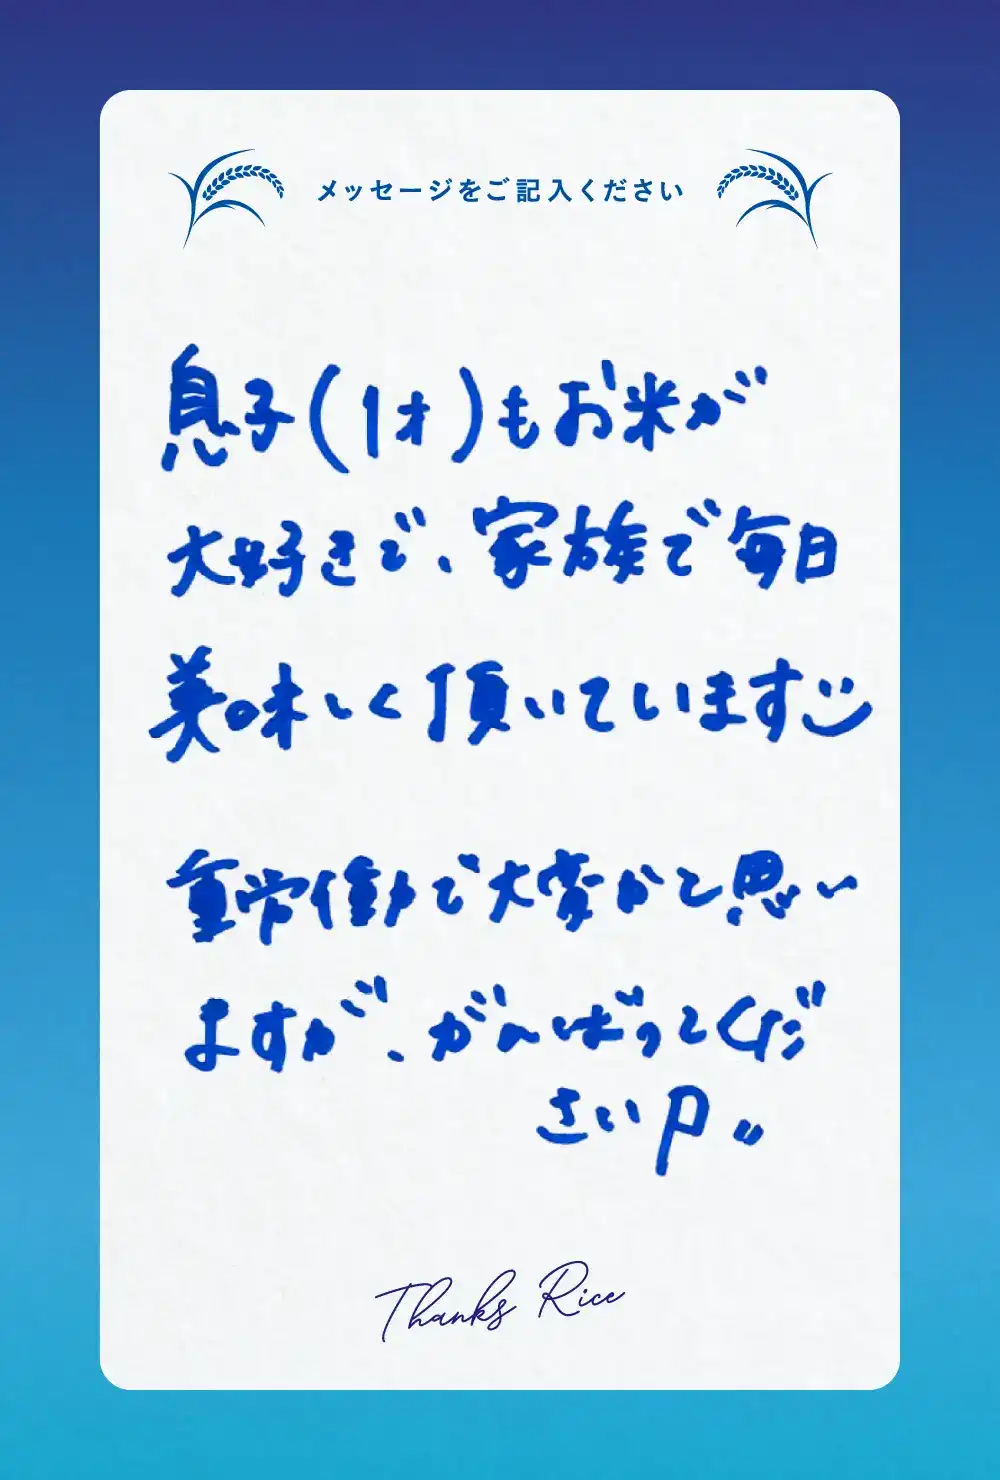 メッセージをご記入ください
息子(1才)もお米が
大好きで、家族で毎日
美味しく頂いています
重労働で大変かと思い
ますが、がんばってくだ
さい
Thanks Rice